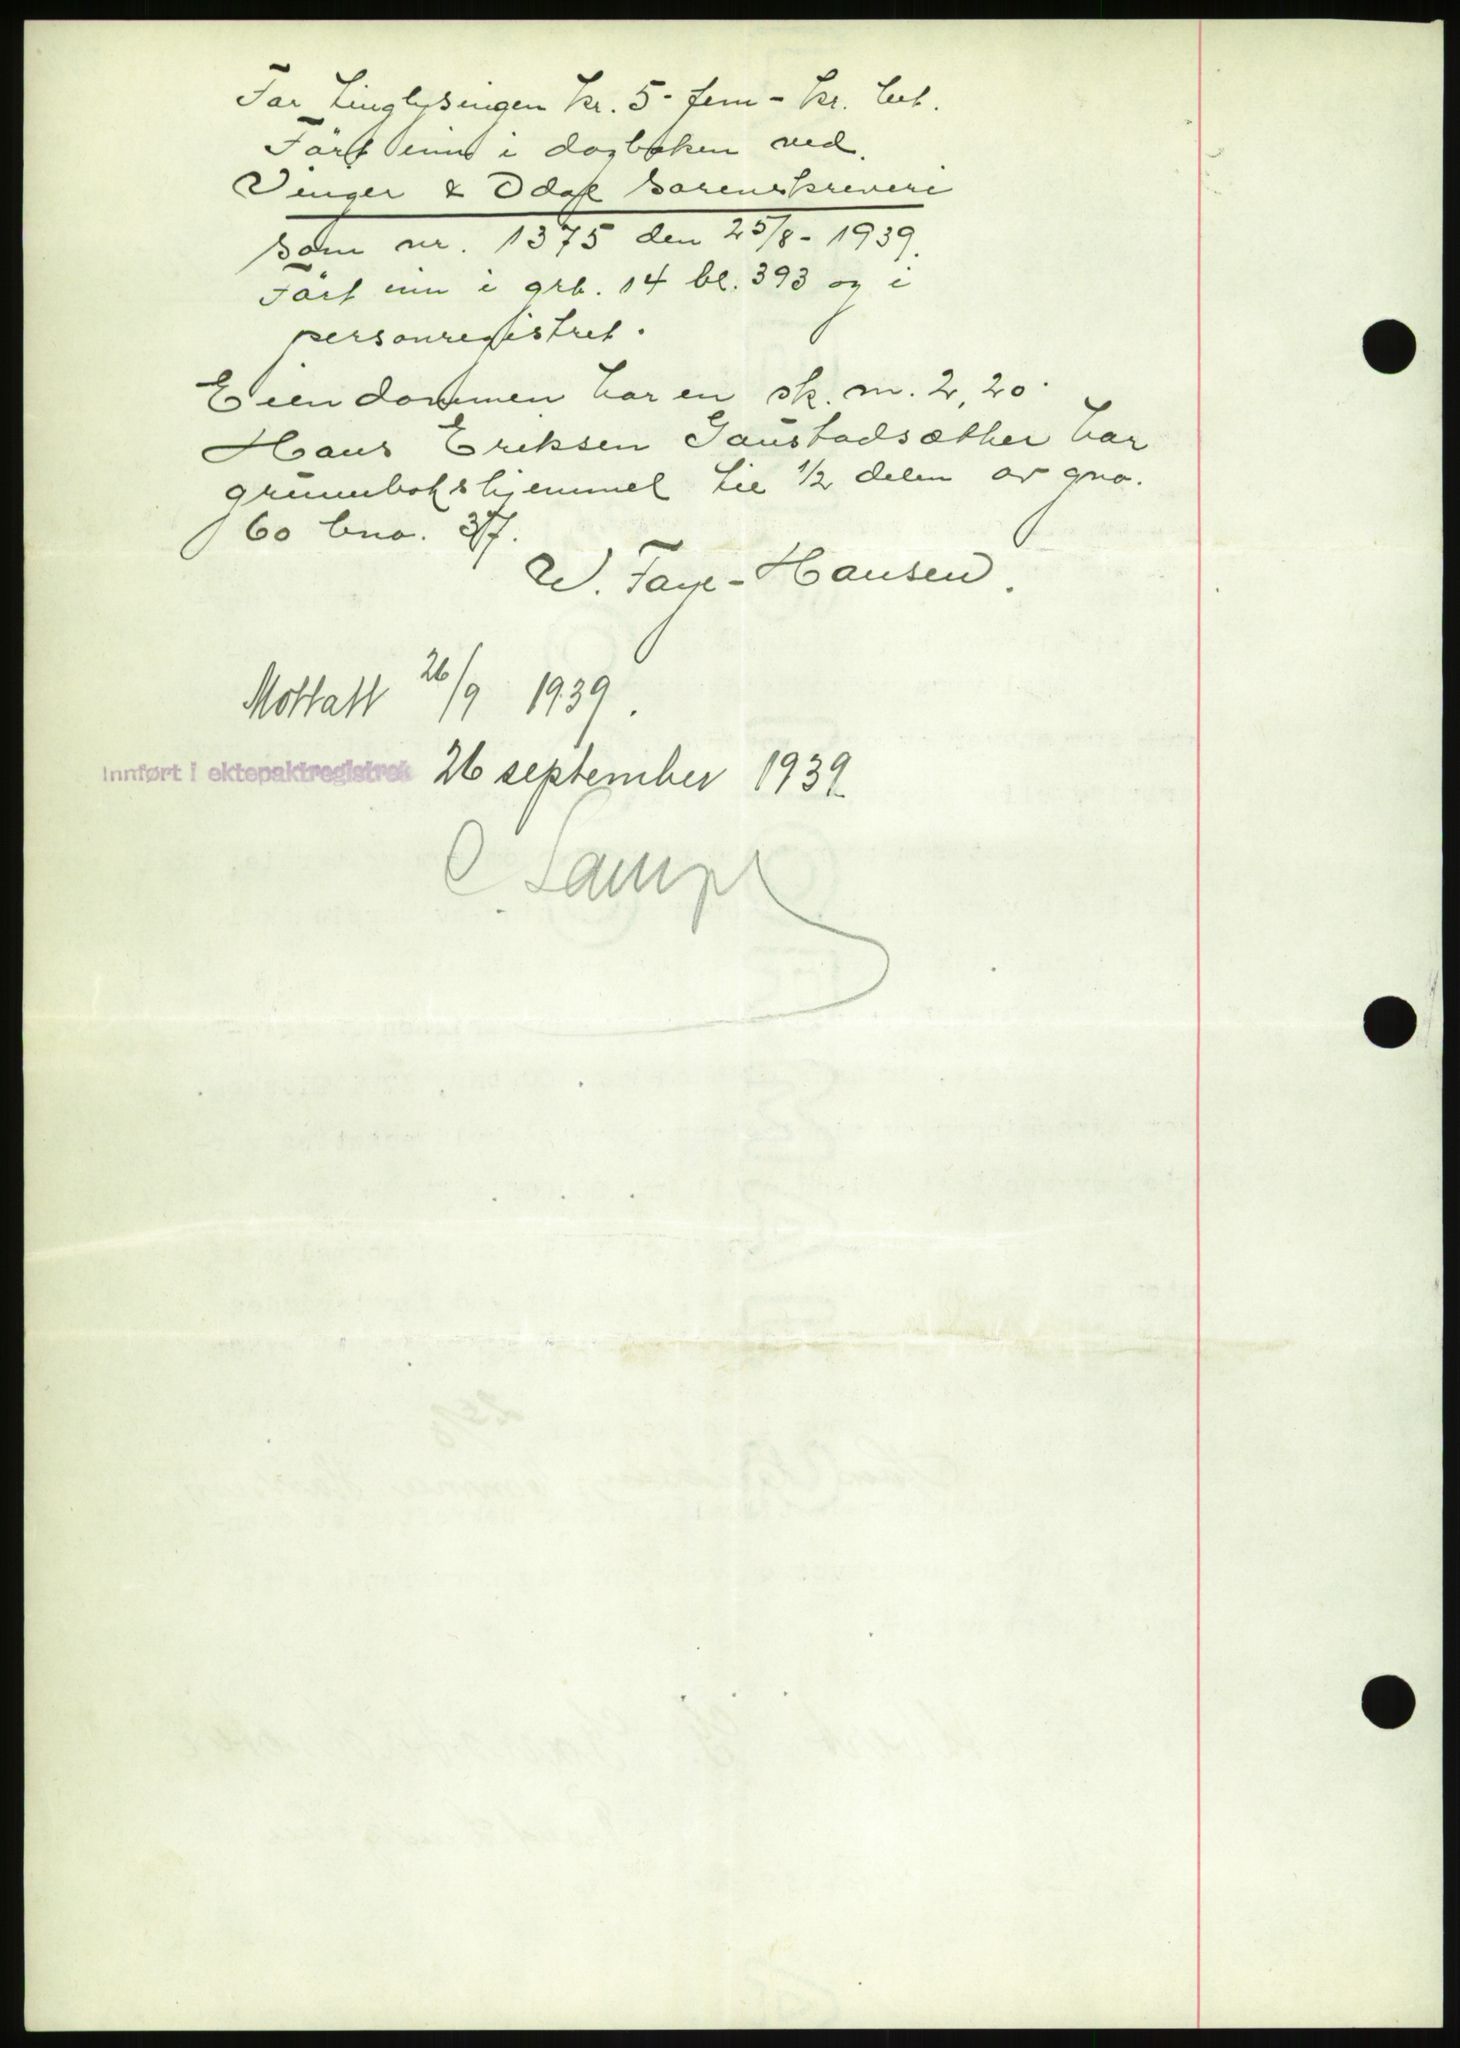 For tinglysingen kr. 5 - fem - kr. bet.
Ført inn i dagboken ved
Vinger & Odal sorenskriveri
som nr. 1375 den 25/8 - 1939.
Ført inn i grb. 14 bl. 393 og i
personregistret.
Eiendommen har en sk. m. 2,20.
Hans Eriksen Gaustadsæther har
grunnbokshjemmel til 1/2 delen av gno.
60 bno. 37.
W. Faye-Hansen.
Mottatt 26/9 1939.
Innført i ektepaktregistret 26 september 1939
C.